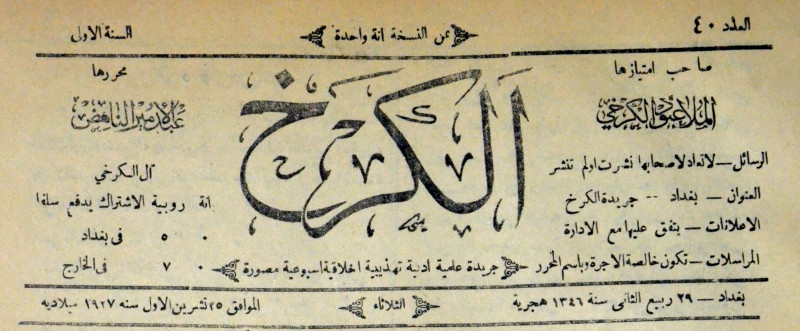 العدد ٤٠
ثمن النسخة انة واحدة
السنة الاول
صاحب امتيازها
الملا عبود الكرخي
الرسائل — لا تعاد لاصحابها نشرت اولم تنشر
العنوان — بغداد -- جريدة الكرخ
الاعلانات — يتفق عليها مع الادارة
المراسلات — تكون خالصة الاجرة وباسم المحرر
الكرخ
جريدة علمية ادبية تهذيبية اخلاقية اسبوعية مصورة
محررها
عبد الامير الناهض
آل الكرخي
انة روبية الاشتراك يدفع سلفا
٠ ٥ فى بغداد
٠ ٧ فى الخارج
بغداد — ٢٩ ربيع الثانى سنة ١٣٤٦ هجرية
الثلاثاء
الموافق ٢٥ تشرين الاول سنه ١٩٢٧ ميلاديه